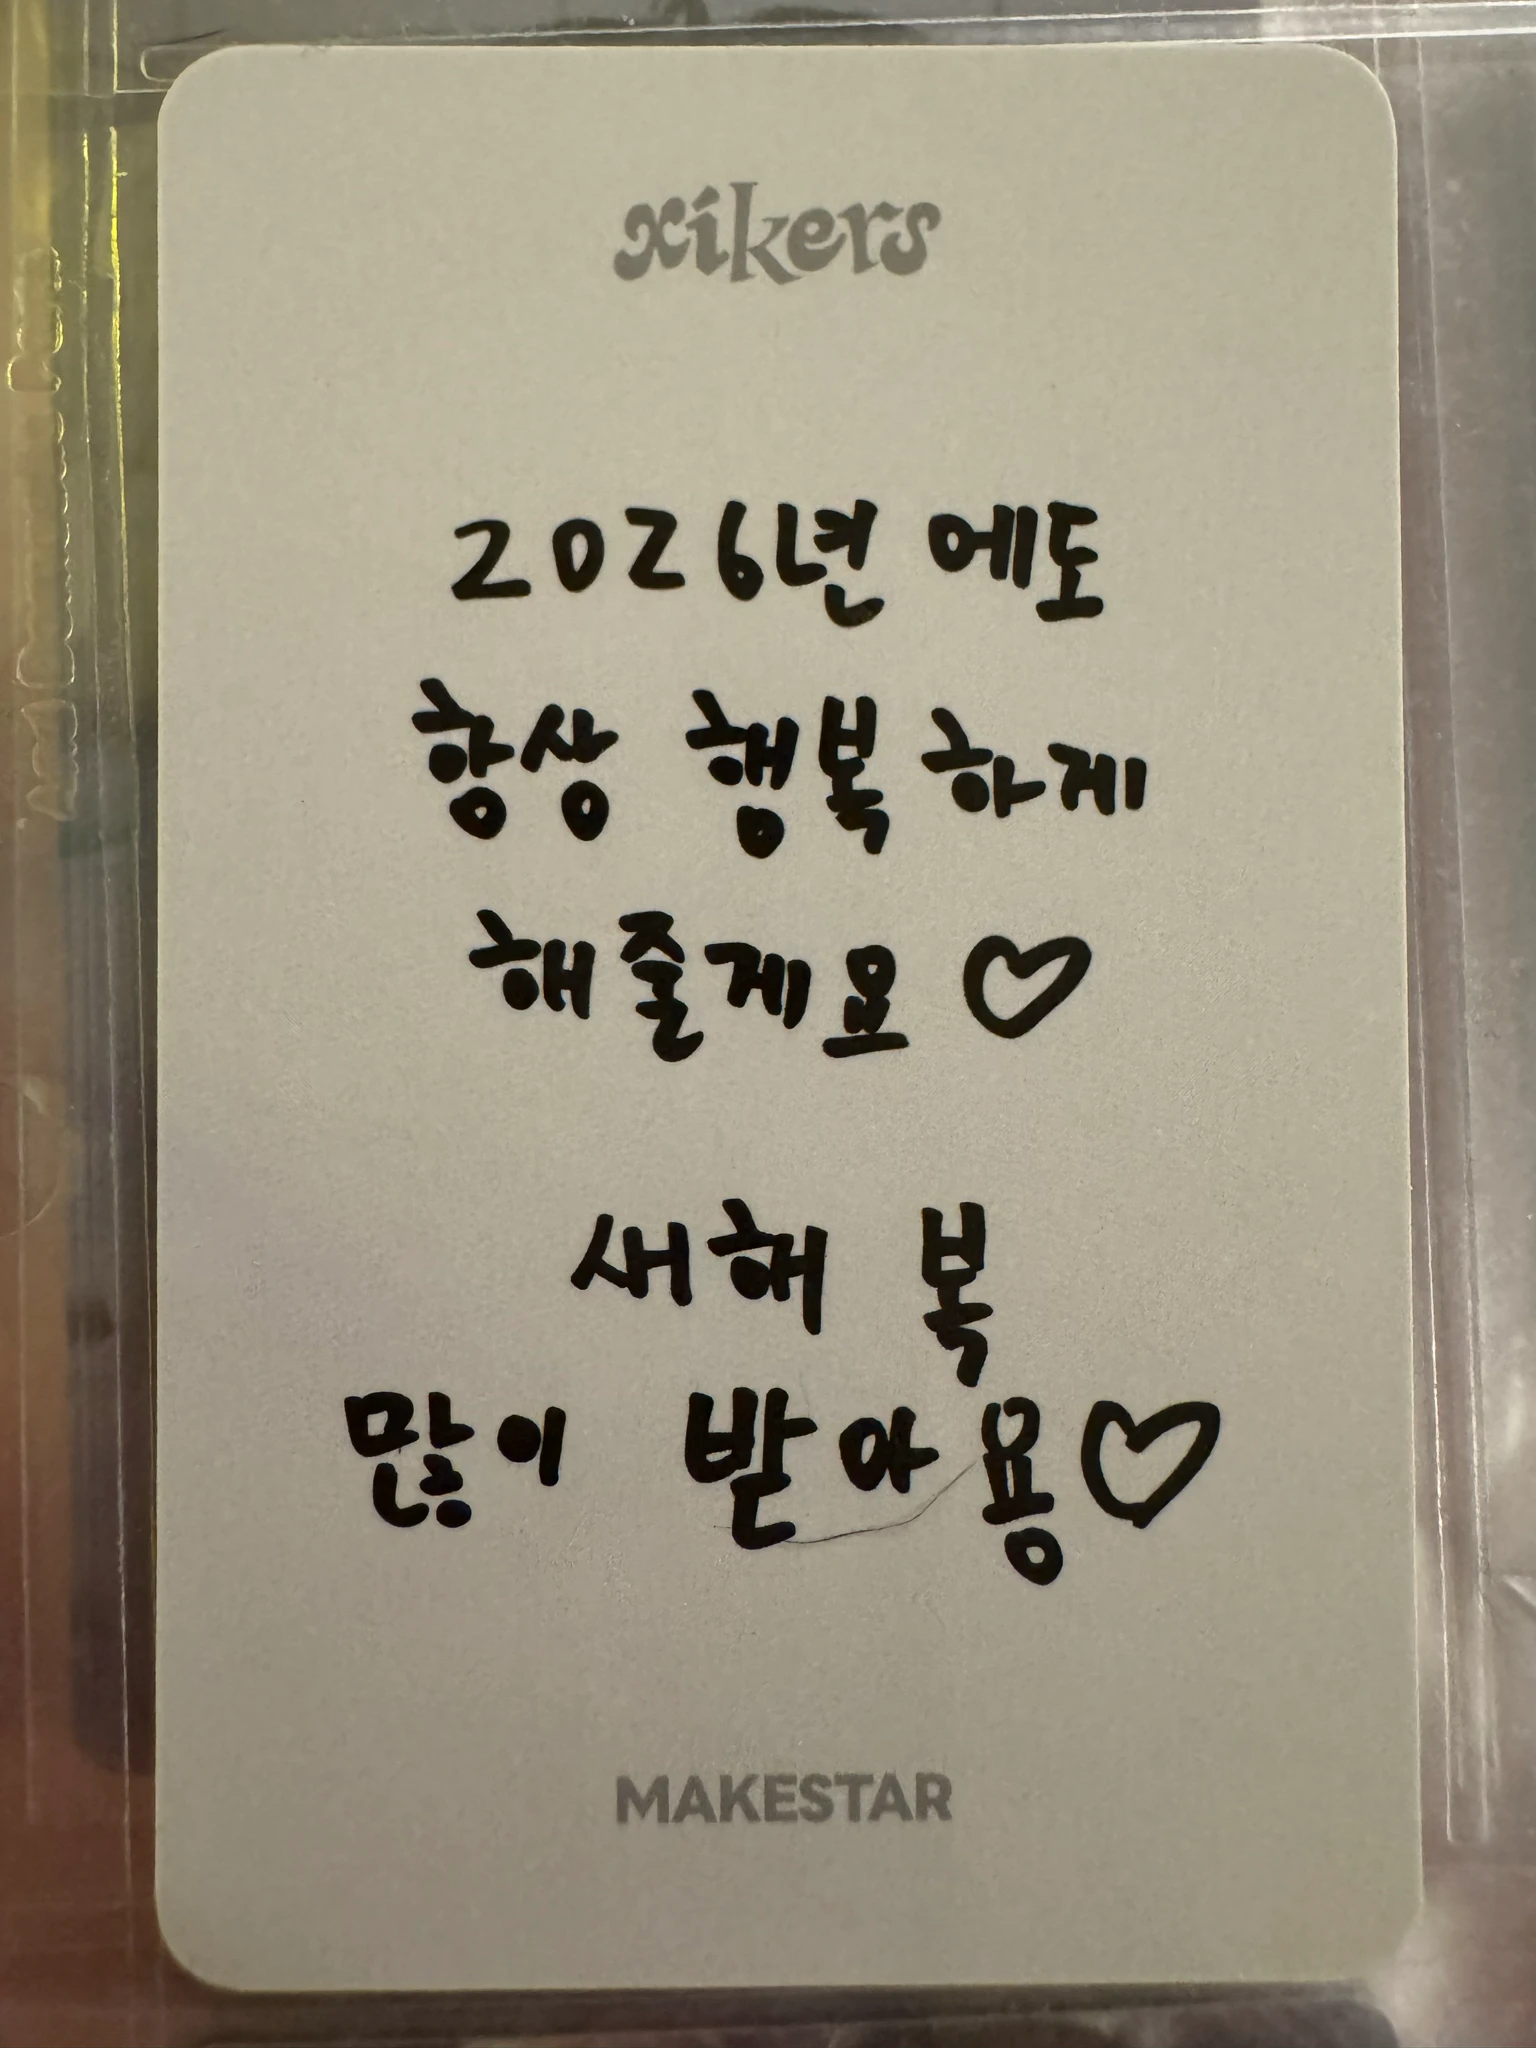 xikers
2026년 에도
항상 행복하게
해줄게요 ♡
새해 복
많이 받아용♡
MAKESTAR